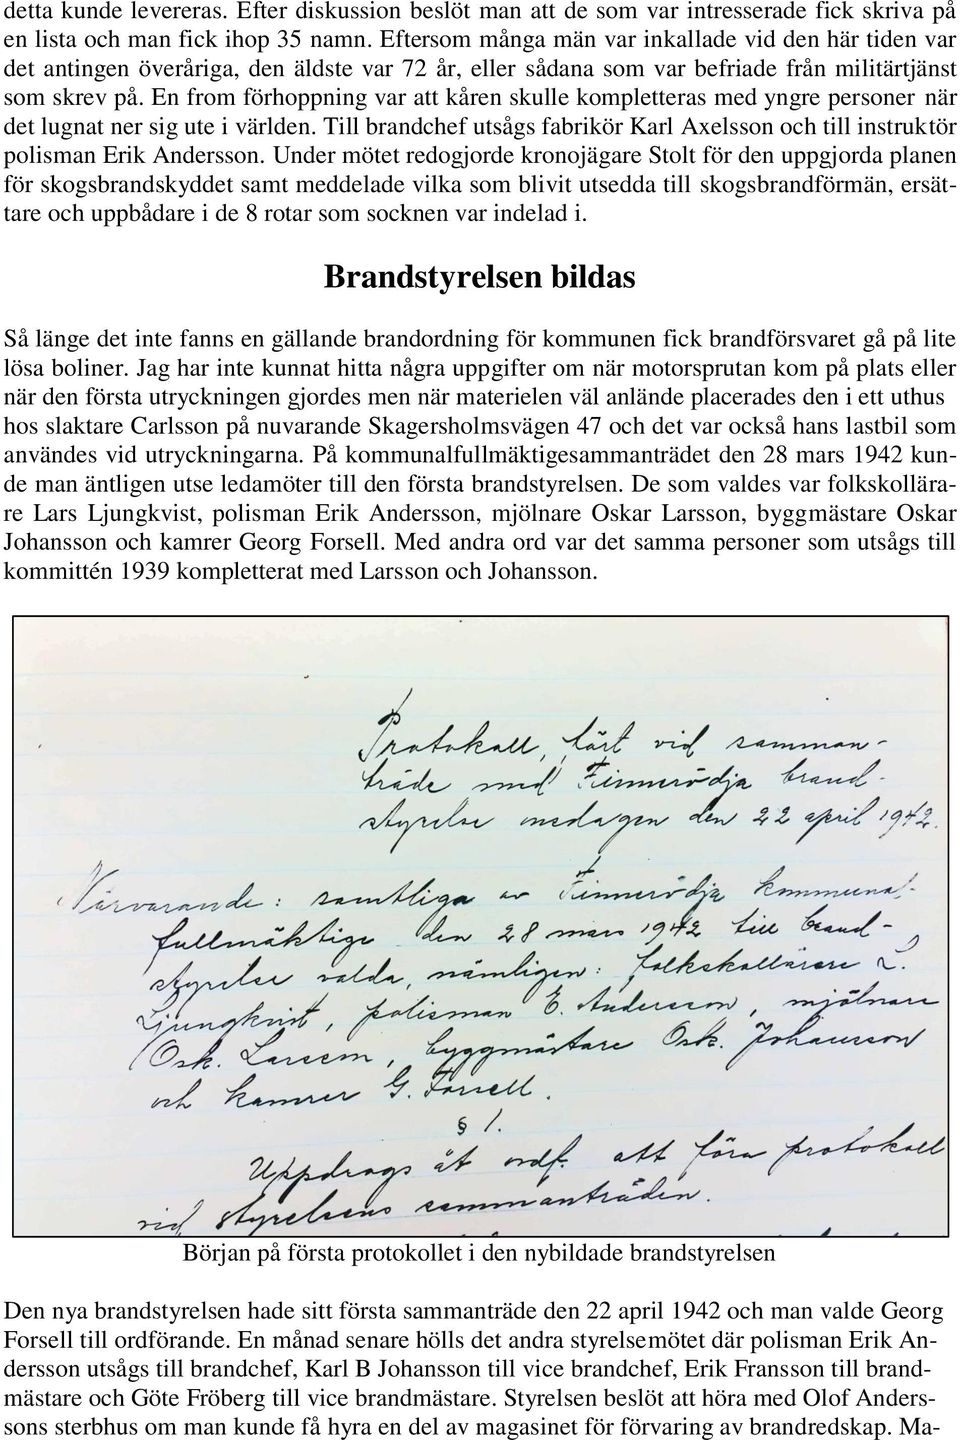 detta kunde levereras. Efter diskussion beslöt man att de som var intresserade fick skriva på
en lista och man fick ihop 35 namn. Eftersom många män var inkallade vid den här tiden var
det antingen överåriga, den äldste var 72 år, eller sådana som var befriade från militärtjänst
som skrev på. En from förhoppning var att kåren skulle kompletteras med yngre personer när
det lugnat ner sig ute i världen. Till brandchef utsågs fabrikör Karl Axelsson och till instruktör
polisman Erik Andersson. Under mötet redogjorde kronojägare Stolt för den uppgjorda planen
för skogsbrandskyddet samt meddelade vilka som blivit utsedda till skogsbrandförmän, ersät-
tare och uppbådare i de 8 rotar som socknen var indelad i.
Brandstyrelsen bildas
Så länge det inte fanns en gällande brandordning för kommunen fick brandförsvaret gå på lite
lösa boliner. Jag har inte kunnat hitta några uppgifter om när motorsprutan kom på plats eller
när den första utryckningen gjordes men när materielen väl anlände placerades den i ett uthus
hos slaktare Carlsson på nuvarande Skagersholmsvägen 47 och det var också hans lastbil som
användes vid utryckningarna. På kommunalfullmäktigesammanträdet den 28 mars 1942 kun-
de man äntligen utse ledamöter till den första brandstyrelsen. De som valdes var folkskollära-
re Lars Ljungkvist, polisman Erik Andersson, mjölnare Oskar Larsson, byggmästare Oskar
Johansson och kamrer Georg Forsell. Med andra ord var det samma personer som utsågs till
kommittén 1939 kompletterat med Larsson och Johansson.
Protokoll, fört vid samman-
träde med Finnerödja brand-
styrelse onsdagen den 22 april 1942.
Närvarande: samtliga av Finnerödja kommunal-
fullmäktige den 28 mars 1942 till brand-
styrelse valda, nämligen: folkskollärare L.
Ljungkvist, polisman E. Andersson, mjölnare
Osk. Larsson, byggmästare Osk. Johansson
och kamrer G. Forsell.
§ 1.
Uppdrogs åt ordf. att föra protokoll
vid styrelsens sammanträden.
Början på första protokollet i den nybildade brandstyrelsen
Den nya brandstyrelsen hade sitt första sammanträde den 22 april 1942 och man valde Georg
Forsell till ordförande. En månad senare hölls det andra styrelsemötet där polisman Erik An-
dersson utsågs till brandchef, Karl B Johansson till vice brandchef, Erik Fransson till brand-
mästare och Göte Fröberg till vice brandmästare. Styrelsen beslöt att höra med Olof Anders-
sons sterbhus om man kunde få hyra en del av magasinet för förvaring av brandredskap. Ma-